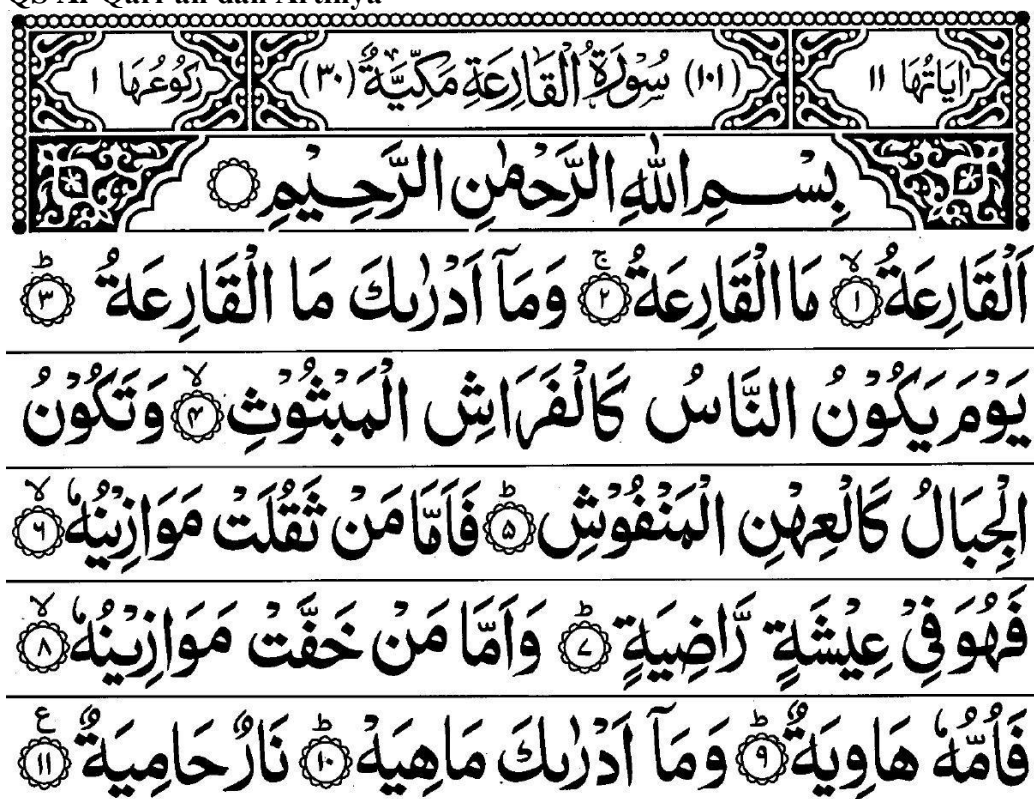 QS Al-Qari'ah dan Artinya
اٰيَاتُهَا ١١ (١٠١) سُوْرَةُ الْقَارِعَةِ مَكِّيَّةٌ (٣٠) رُكُوْعُهَا ١
بِسْمِ اللّٰهِ الرَّحْمٰنِ الرَّحِيْمِ
اَلْقَارِعَةُ ۙ‏ ١ مَا الْقَارِعَةُ ۚ‏ ٢ وَمَاۤ اَدْرٰىكَ مَا الْقَارِعَةُ ؕ‏ ٣
يَوْمَ يَكُوْنُ النَّاسُ كَالْفَرَاشِ الْمَبْثُوْثِ ۙ‏ ٤ وَتَكُوْنُ
الْجِبَالُ كَالْعِهْنِ الْمَنْفُوْشِ ؕ‏ ٥ فَاَمَّا مَنْ ثَقُلَتْ مَوَازِيْنُهٗ ۙ‏ ٦
فَهُوَ فِيْ عِيْشَةٍ رَّاضِيَةٍ ؕ‏ ٧ وَاَمَّا مَنْ خَفَّتْ مَوَازِيْنُهٗ ۙ‏ ٨
فَاُمُّهٗ هَاوِيَةٌ ؕ‏ ٩ وَمَاۤ اَدْرٰىكَ مَاهِيَهْ ؕ‏ ١٠ نَارٌ حَامِيَةٌ ١١ ع